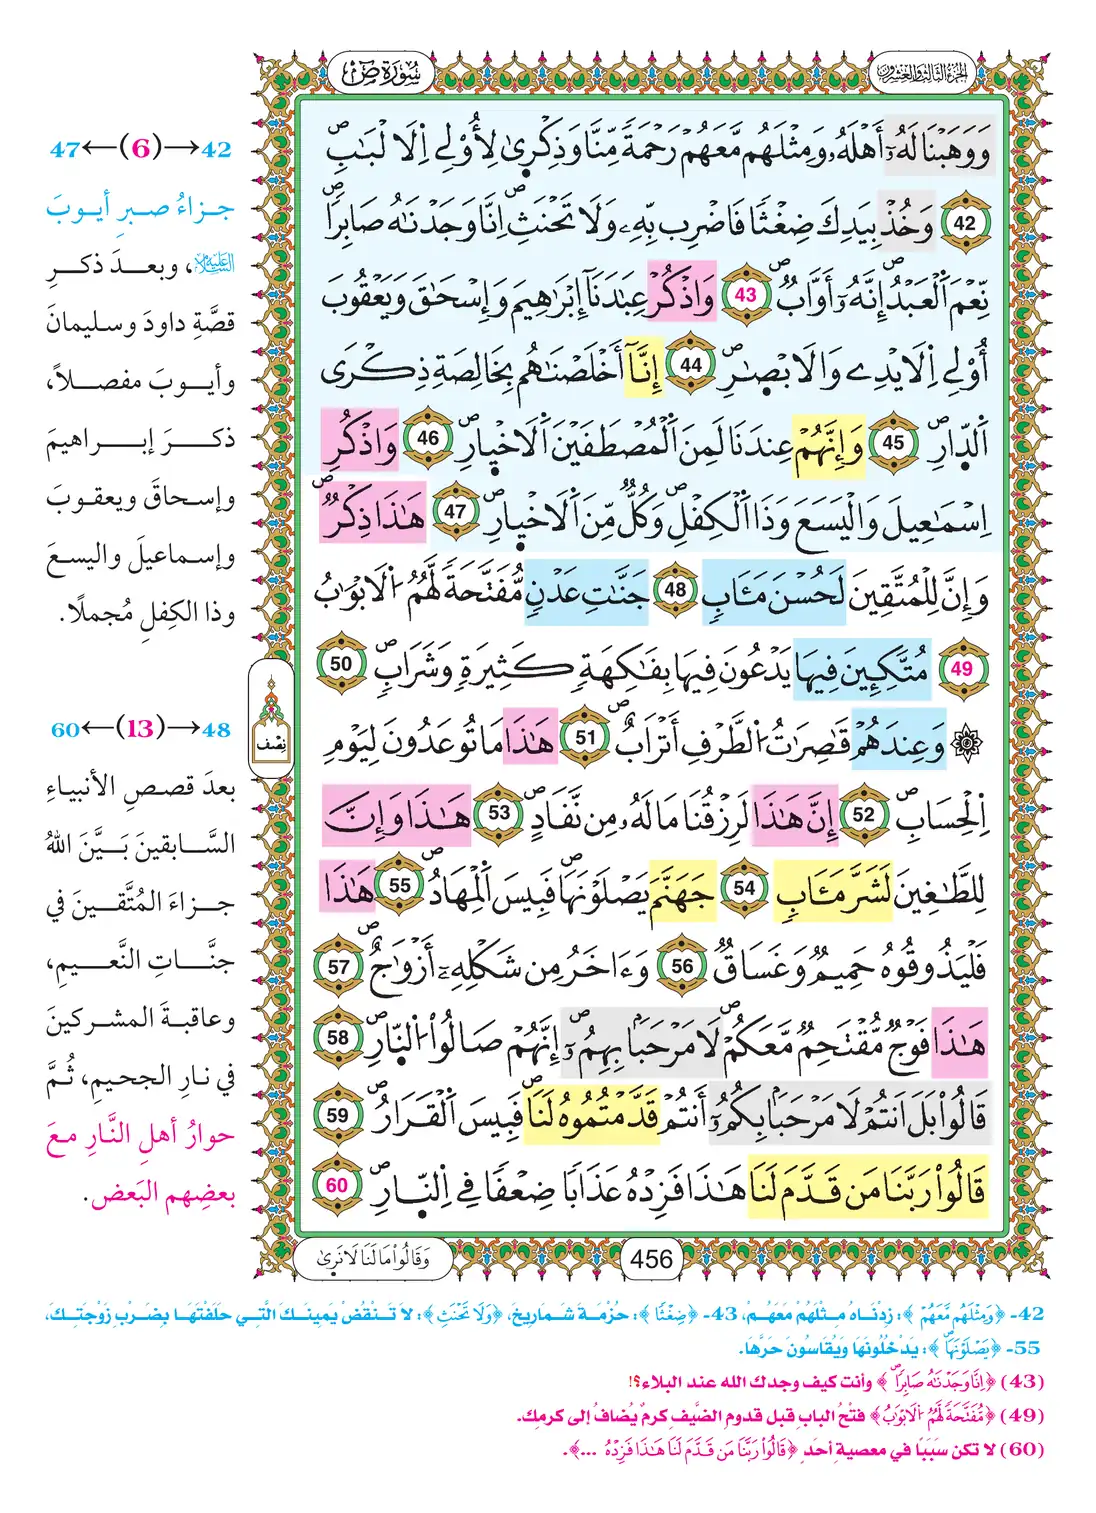 الجزء الثالث والعشرون
سُورَةُ صٓ
وَوَهَبْنَا لَهُۥٓ أَهْلَهُۥ وَمِثْلَهُم مَّعَهُمْ رَحْمَةٗ مِّنَّا وَذِكْر۪يٰ لِأُوْلِے اِ۬لَالْبَٰبِۖ
42 وَخُذْ بِيَدِكَ ضِغْثٗا فَاضْرِب بِّهِۦ وَلَا تَحْنَثِۖ اِنَّا وَجَدْنَٰهُ صَابِراٗۖ
نِّعْمَ اَ۬لْعَبْدُۖ إِنَّهُۥٓ أَوَّابٞۖ 43 وَاذْكُرْ عِبَٰدَنَآ إِبْرَٰهِيمَ وَإِسْحَٰقَ وَيَعْقُوبَ
أُوْلِے اِ۬لَايْدِے وَالَابْصٰ۪رِۖ 44 إِنَّآ أَخْلَصْنَٰهُم بِخَالِصَةِ ذِكْرَى
اَ۬لدّ۪ارِۖ 45 وَإِنَّهُمْ عِندَنَا لَمِنَ اَ۬لْمُصْطَفَيْنَ اَ۬لَاخْي۪ارِۖ 46 وَاذْكُرِ
اِسْمَٰعِيلَ وَالْيَسَعَ وَذَا اَ۬لْكِفْلِۖ وَكُلّٞ مِّنَ اَ۬لَاخْي۪ارِۖ 47 هَٰذَا ذِكْرٞۖ
وَإِنَّ لِلْمُتَّقِينَ لَحُسْنَ مَـَٔابٖ 48 جَنَّٰتِ عَدْنٖ مُّفَتَّحَةٗ لَّهُمُ اُ۬لَابْوَٰبُ
49 مُتَّكِـِٕينَ فِيهَا يَدْعُونَ فِيهَا بِفَٰكِهَةٖ كَثِيرَةٖ وَشَرَابٖۖ 50
۞ وَعِندَهُمْ قَٰصِرَٰتُ اُ۬لطَّرْفِ أَتْرَابٌۖ 51 هَٰذَا مَا تُوعَدُونَ لِيَوْمِ
اِ۬لْحِسَابِۖ 52 إِنَّ هَٰذَا لَرِزْقُنَا مَا لَهُۥ مِن نَّفَادٍۖ 53 هَٰذَا وَإِنَّ
لِلطَّٰغِينَ لَشَرَّ مَـَٔابٖ 54 جَهَنَّمَ يَصْلَوْنَهَاۖ فَبِيسَ اَ۬لْمِهَادُۖ 55 هَٰذَا
فَلْيَذُوقُوهُ حَمِيمٞ وَغَسَاقٞۖ 56 وَءَاخَرُ مِن شَكْلِهِۦٓ أَزْوَٰجٌۖ 57
هَٰذَا فَوْجٞ مُّقْتَحِمٞ مَّعَكُمْۖ لَا مَرْحَباَۢ بِهِمُۥٓۖ إِنَّهُمْ صَالُواْ اُ۬لنّ۪ارِۖ 58
قَالُواْ بَلَ اَنتُمْ لَا مَرْحَباَۢ بِكُمُۥٓ أَنتُمْ قَدَّمْتُمُوهُ لَنَاۖ فَبِيسَ اَ۬لْقَرَارُۖ 59
قَالُواْ رَبَّنَا مَن قَدَّمَ لَنَا هَٰذَا فَزِدْهُ عَذَاباٗ ضِعْفاٗ فِے اِ۬لنّ۪ارِۖ 60
وَقَالُواْ مَا لَنَا لَا نَر۪يٰ
456
نِصْف
42→(6)←47
جزاءُ صبرِ أيوبَ
عليه السلام، وبعدَ ذكرِ
قصَّةِ داودَ وسليمانَ
وأيوبَ مفصلاً،
ذكرَ إبراهيمَ
وإسحاقَ ويعقوبَ
وإسماعيلَ واليسعَ
وذا الكِفلِ مُجملًا.
48→(13)←60
بعدَ قصصِ الأنبياءِ
السَّابقينَ بَيَّنَ اللهُ
جزاءَ المُتَّقينَ في
جنَّاتِ النَّعيمِ،
وعاقبةَ المشركينَ
في نارِ الجحيمِ، ثُمَّ
حوارُ أهلِ النَّارِ معَ
بعضِهم البَعض.
42- ﴿وَمِثْلَهُم مَّعَهُمْ﴾: زِدْنَاهُ مِثْلَهُمْ مَعَهُمْ، 43- ﴿ضِغْثٗا﴾: حُزْمَةَ شَمَارِيخَ، ﴿وَلَا تَحْنَثِ﴾: لَا تَنْقُضْ يَمِينَكَ الَّتِي حَلَفْتَهَا بِضَرْبِ زَوْجَتِكَ،
55- ﴿يَصْلَوْنَهَاۖ﴾: يَدْخُلُونَهَا وَيُقَاسُونَ حَرَّهَا.
(43) ﴿اِنَّا وَجَدْنَٰهُ صَابِراٗۖ﴾ وأنت كيف وجدك الله عند البلاء؟!
(49) ﴿مُّفَتَّحَةٗ لَّهُمُ اُ۬لَابْوَٰبُ﴾ فتْحُ البابِ قبل قدومِ الضَّيفِ كرمٌ يُضافُ إلى كرمِك.
(60) لا تكن سَبَبًا في معصيةِ أحَدٍ ﴿قَالُواْ رَبَّنَا مَن قَدَّمَ لَنَا هَٰذَا فَزِدْهُ ...﴾.